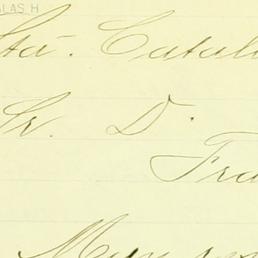 LAS H
Sta. Catal
Sr. D.
Fra
Muy